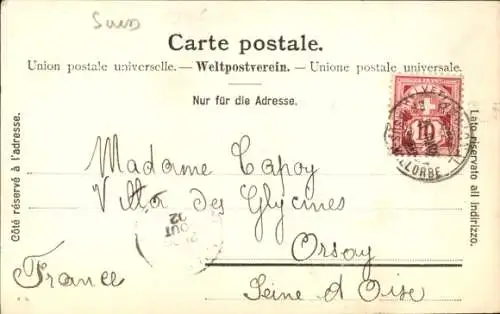 Suess
Carte postale.
Union postale universelle. — Weltpostverein. — Unione postale universale.
Nur für die Adresse.
Côté réservé à l'adresse.
Lato riservato all indirizzo.
10
VALLORBE
Madame Capoy
Villa des Glycines
AOUT
02
Orsay
France
Seine d Oise